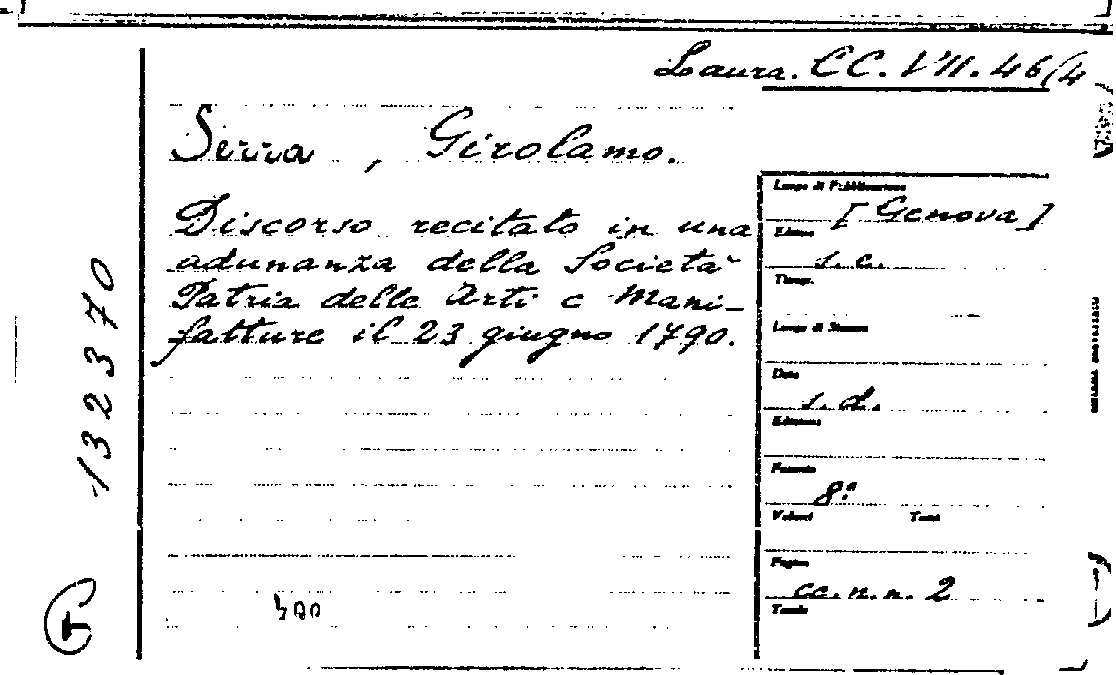 Laura. CC. VII. 46/4
Serra, Girolamo.
Discorso recitato in una
adunanza della Società
Patria delle Arti e Mani-
fatture il 23 giugno 1790.
Luogo di Pubblicazione
[Genova]
Editore
s.e.
Tipogr.
Luogo di Stampa
Data
s.d.
Edizione
Formato
8º
Volumi Tomi
Pagine
cc. n. n. 2
Tavole
132370
T